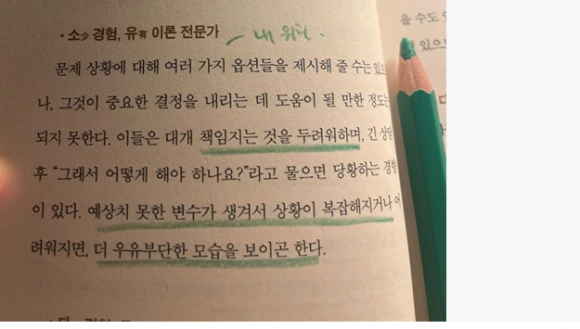 · 소少 경험, 유有 이론 전문가 – 내 위치.
문제 상황에 대해 여러 가지 옵션들을 제시해 줄 수는 있으
나, 그것이 중요한 결정을 내리는 데 도움이 될 만한 정도는
되지 못한다. 이들은 대개 책임지는 것을 두려워하며, 긴 상담
후 “그래서 어떻게 해야 하나요?”라고 물으면 당황하는 경향
이 있다. 예상치 못한 변수가 생겨서 상황이 복잡해지거나 어
려워지면, 더 우유부단한 모습을 보이곤 한다.
을 수도
있으